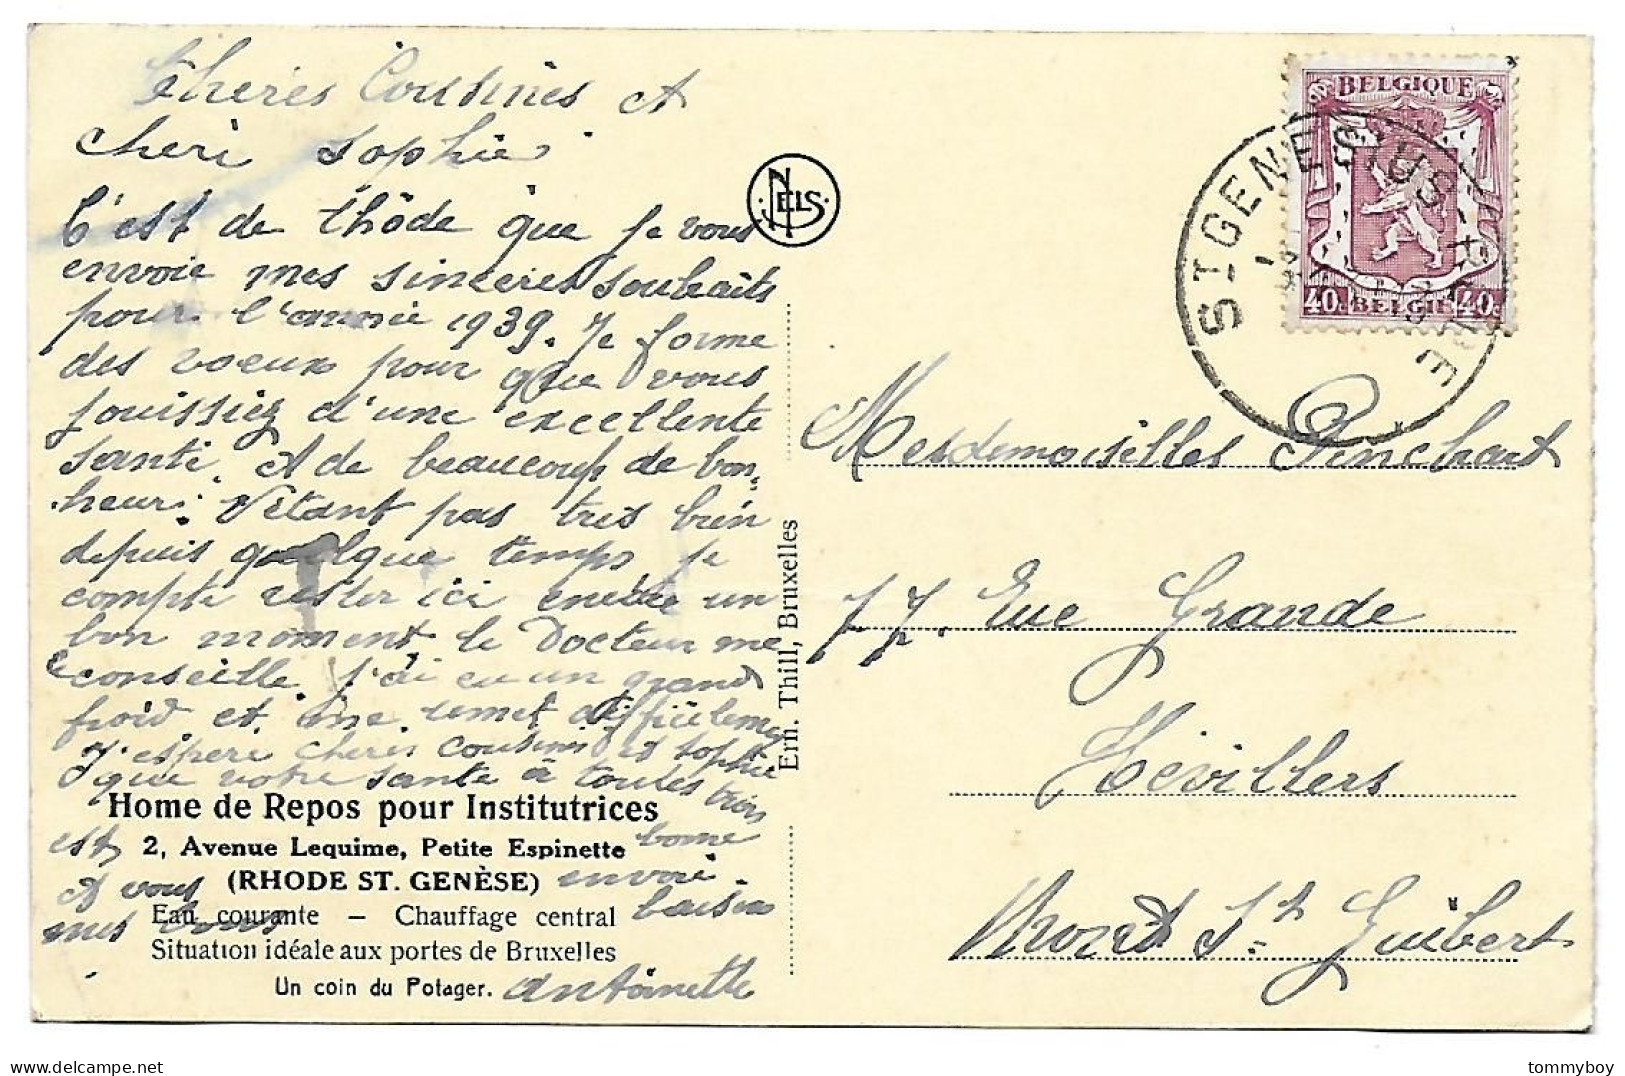 Chéries Cousines et
cheri Sophie
C'est de Rhôde que je vous
envoie mes sincères souhaits
pour l'année 1939. Je forme
des voeux pour que vous
jouissiez d'une excellente
santé. Et de beaucoup de bon-
heur. N'étant pas très bien
depuis quelque temps je
compte rester ici encore un
bon moment le Docteur me
le conseille. J'ai eu un grand
froid et me remet difficilement
J'espère cheries cousines et Sophie
que votre santé à toutes trois
est bonne
Et vous envoie
mes bons baisers
Antoinette
Home de Repos pour Institutrices
2, Avenue Lequime, Petite Espinette
(RHODE ST. GENÈSE)
Eau courante – Chauffage central
Situation idéale aux portes de Bruxelles
Un coin du Potager.
NELS
Ern. Thill, Bruxelles
BELGIQUE
40c BELGIE 40c
ST GENESIUS RODE
Mesdemoiselles Pinchart
77. Rue Grande
Hévillers
Mont St. Guibert
tommyboy